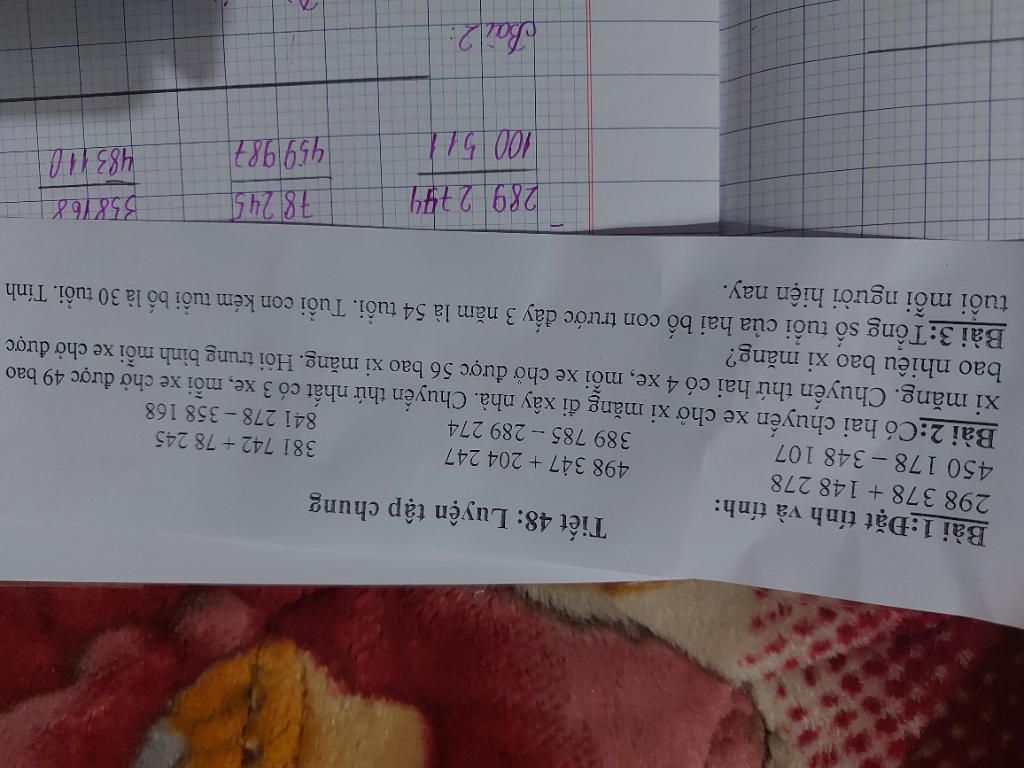 Tiết 48: Luyện tập chung
Bài 1:Đặt tính và tính:
298 378 + 148 278
498 347 + 204 247
381 742 + 78 245
450 178 – 348 107
389 785 – 289 274
841 278 – 358 168
Bài 2:Có hai chuyến xe chở xi măng đi xây nhà. Chuyến thứ nhất có 3 xe, mỗi xe chở được 49 bao
xi măng. Chuyến thứ hai có 4 xe, mỗi xe chở được 56 bao xi măng. Hỏi trung bình mỗi xe chở được
bao nhiêu bao xi măng?
Bài 3:Tổng số tuổi của hai bố con trước đấy 3 năm là 54 tuổi. Tuổi con kém tuổi bố là 30 tuổi. Tính
tuổi mỗi người hiện nay.
289 274 78 245 358168
100 511 459 987 483110
Bài 2: